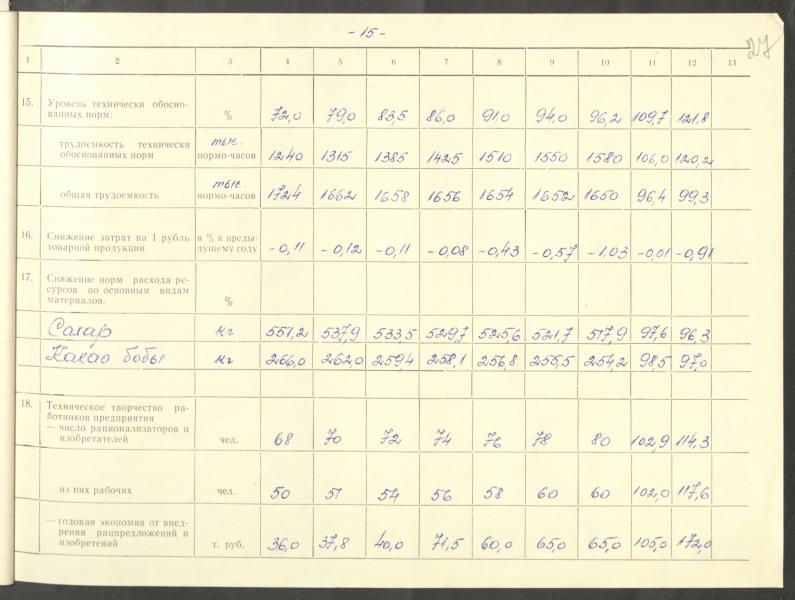 - 15 -
27
1 2 3 4 5 6 7 8 9 10 11 12 13
15. Уровень технически обосно-
ванных норм: % 72,0 79,0 83,5 86,0 91,0 94,0 96,2 109,7 121,8
трудоемкость технически тыс.
обоснованных норм нормо-часов 1240 1315 1385 1425 1510 1550 1580 106,0 120,2
тыс.
общая трудоемкость нормо-часов 1724 1662 1658 1656 1654 1652 1650 96,4 99,3
16. Снижение затрат на 1 рубль в % к преды-
товарной продукции дущему году -0,11 -0,12 -0,11 -0,08 -0,43 -0,57 -1,03 -0,01 -0,91
17. Снижение норм расхода ре-
сурсов по основным видам
материалов. %
Сахар кг 551,2 537,9 533,5 529,7 525,6 521,7 517,9 97,6 96,3
Какао бобы кг 266,0 262,0 259,4 258,1 256,8 255,5 254,2 98,5 97,0
18. Техническое творчество ра-
ботников предприятия
— число рационализаторов и
изобретателей чел. 68 70 72 74 76 78 80 102,9 114,3
из них рабочих чел. 50 51 54 56 58 60 60 102,0 117,6
— годовая экономия от внед-
рения рацпредложений и
изобретений т. руб. 36,0 37,8 40,0 71,5 60,0 65,0 65,0 105,0 172,0